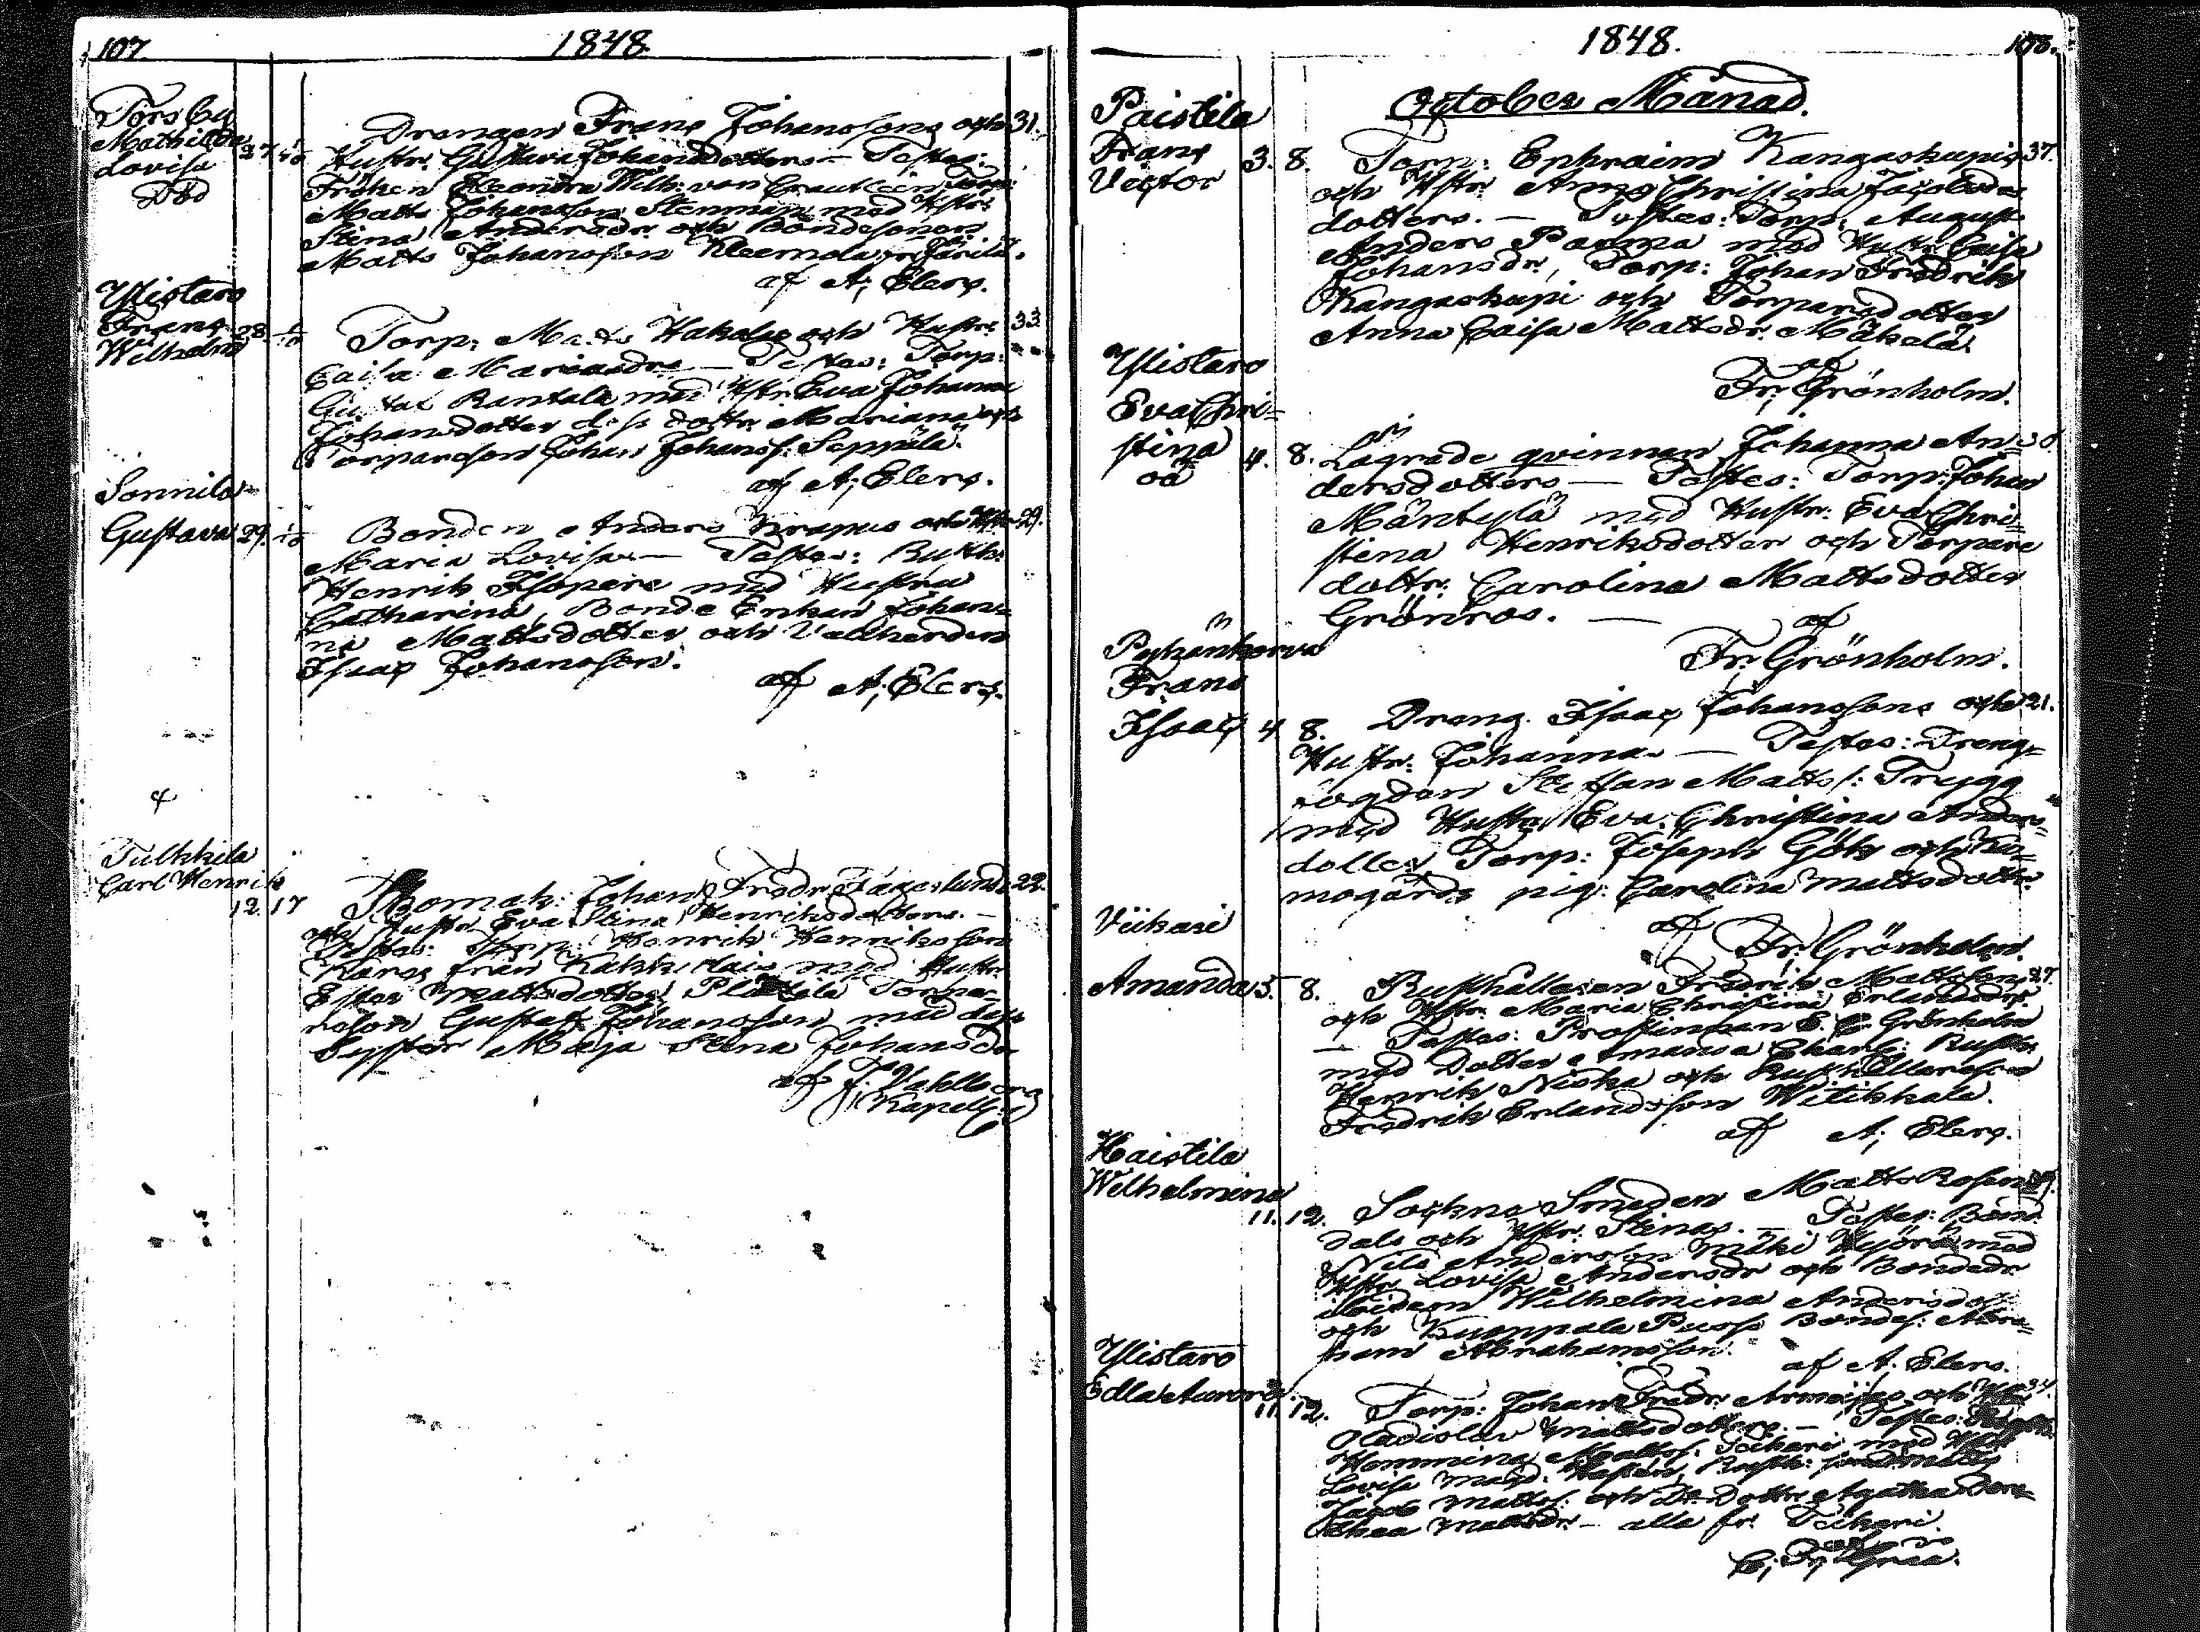 107.
1848.
Torsby
Mathilda
Lovisa
Död
27
Drengen Frans Johanssons och 31.
Hustr. Gustava Johansdotters — Testes:
Fröken Eleonora Wilh. von
Matts Johansson Stenman med Hstr.
Stina Andersdr. och Bondesonen
Matts Johansson Kleemola fr.
af A; Elers.
Ylistaro
Frans
Wilhelm
28
Torp: Matts Hakala och Hustr. 33
Caisa Mariasdr. — Testes: Torp:
Gustaf Rantala med Hstr. Eva Johanna
Johansdotter dess dottr. Mariana och
Torpareson Johan Johanss: Seppälä.
af A; Elers.
Sonnila
Gustava 29.
Bonden Anders Krapus och Hstr. 29.
Maria Lovisa — Testes: Rusth:
Henrik Isopere med Hustru
Catharina, Bonde Enkan Johan-
na Mattsdotter och Vallherden
Isaac Johansson.
af A; Elers.
Tulkkila
Carl Henrik
12. 17
Johan Fredr. 22.
och Hustr. Eva Stina Henriksdotters. —
Testes: Torp: Henrik Henriksson
från med Hustr.
Ester Mattsdotter, Torpa-
reson Gustaf Johansson med dess
Syster Maja Stina Johansdr
af J. Vahlberg
Kapell:
1848.
October Månad.
Paistila
Frans
Victor 3. 8.
Torp: Ephraim Kangaskupis 37.
och Hstr. Anna Christina Jacobs-
dotters. — Testes: Torp: August
Anders Paema med Hustr. Caisa
Johansdr., Torp: Johan Fredrik
Kangaskupi och Torparedotter
Anna Caisa Mattsdr. Mäkelä.
af
Fr; Grönholm.
Ylistaro
Eva Chri-
stina
oä 4. 8.
Lägrade qvinnan Johanna An-
dersdotters — Testes: Torp: Johan
Mäntylä med Hustr. Eva Chri-
stina Henriksdotter och Torpare
dottr. Carolina Mattsdotter
Grönros. —
af
Fr; Grönholm.
Pyhänkorva
Frans
Isaac 4 8.
Dreng. Isaac Johanssons och 21.
Hustr. Johannas — Testes: Dreng-
fogden Steffan Matts: Trygg
med Hustr. Eva Christina Anders-
dotter, Torp: Joseph Gök och
pig: Carolina Mattsdotter.
af
Fr; Grönholm.
Viikari
Amanda 5. 8.
Rusthållaren Fredrik Mattssons 27.
och Hstr. Maria Christina Erlandsdrs.
— Testes: Prostinnan E. C. Grönholm
med Dotter Amanda Charl: Rusth:
Henrik Niska och Rusthållareson
Fredrik Erlandsson Witikkala.
af A; Elers.
Haistila
Wilhelmina
11. 12.
Sockne Smeden Matts Rosen-
dals och Hstr. Stinas. — Testes: Bond.
Nils Andersson Mäki Hyörä med
Hstr. Lovisa Andersdr och Bondedr.
Wilhelmina Andersdotr
och Kumpala Puoss Bondes: Abra-
ham Abrahamsson.
af A. Elers.
Ylistaro
Edla Aurora
11. 12.
Torp: Johan Fredr. och Hstr. 34.
Mattsdotters — Testes:
Hemming Mattss. med Hstr.
Lovisa
Mattss. och Dr. Dottr. Agatha Doro-
thea Mattsdr. — alla fr.
af
C; Fr;